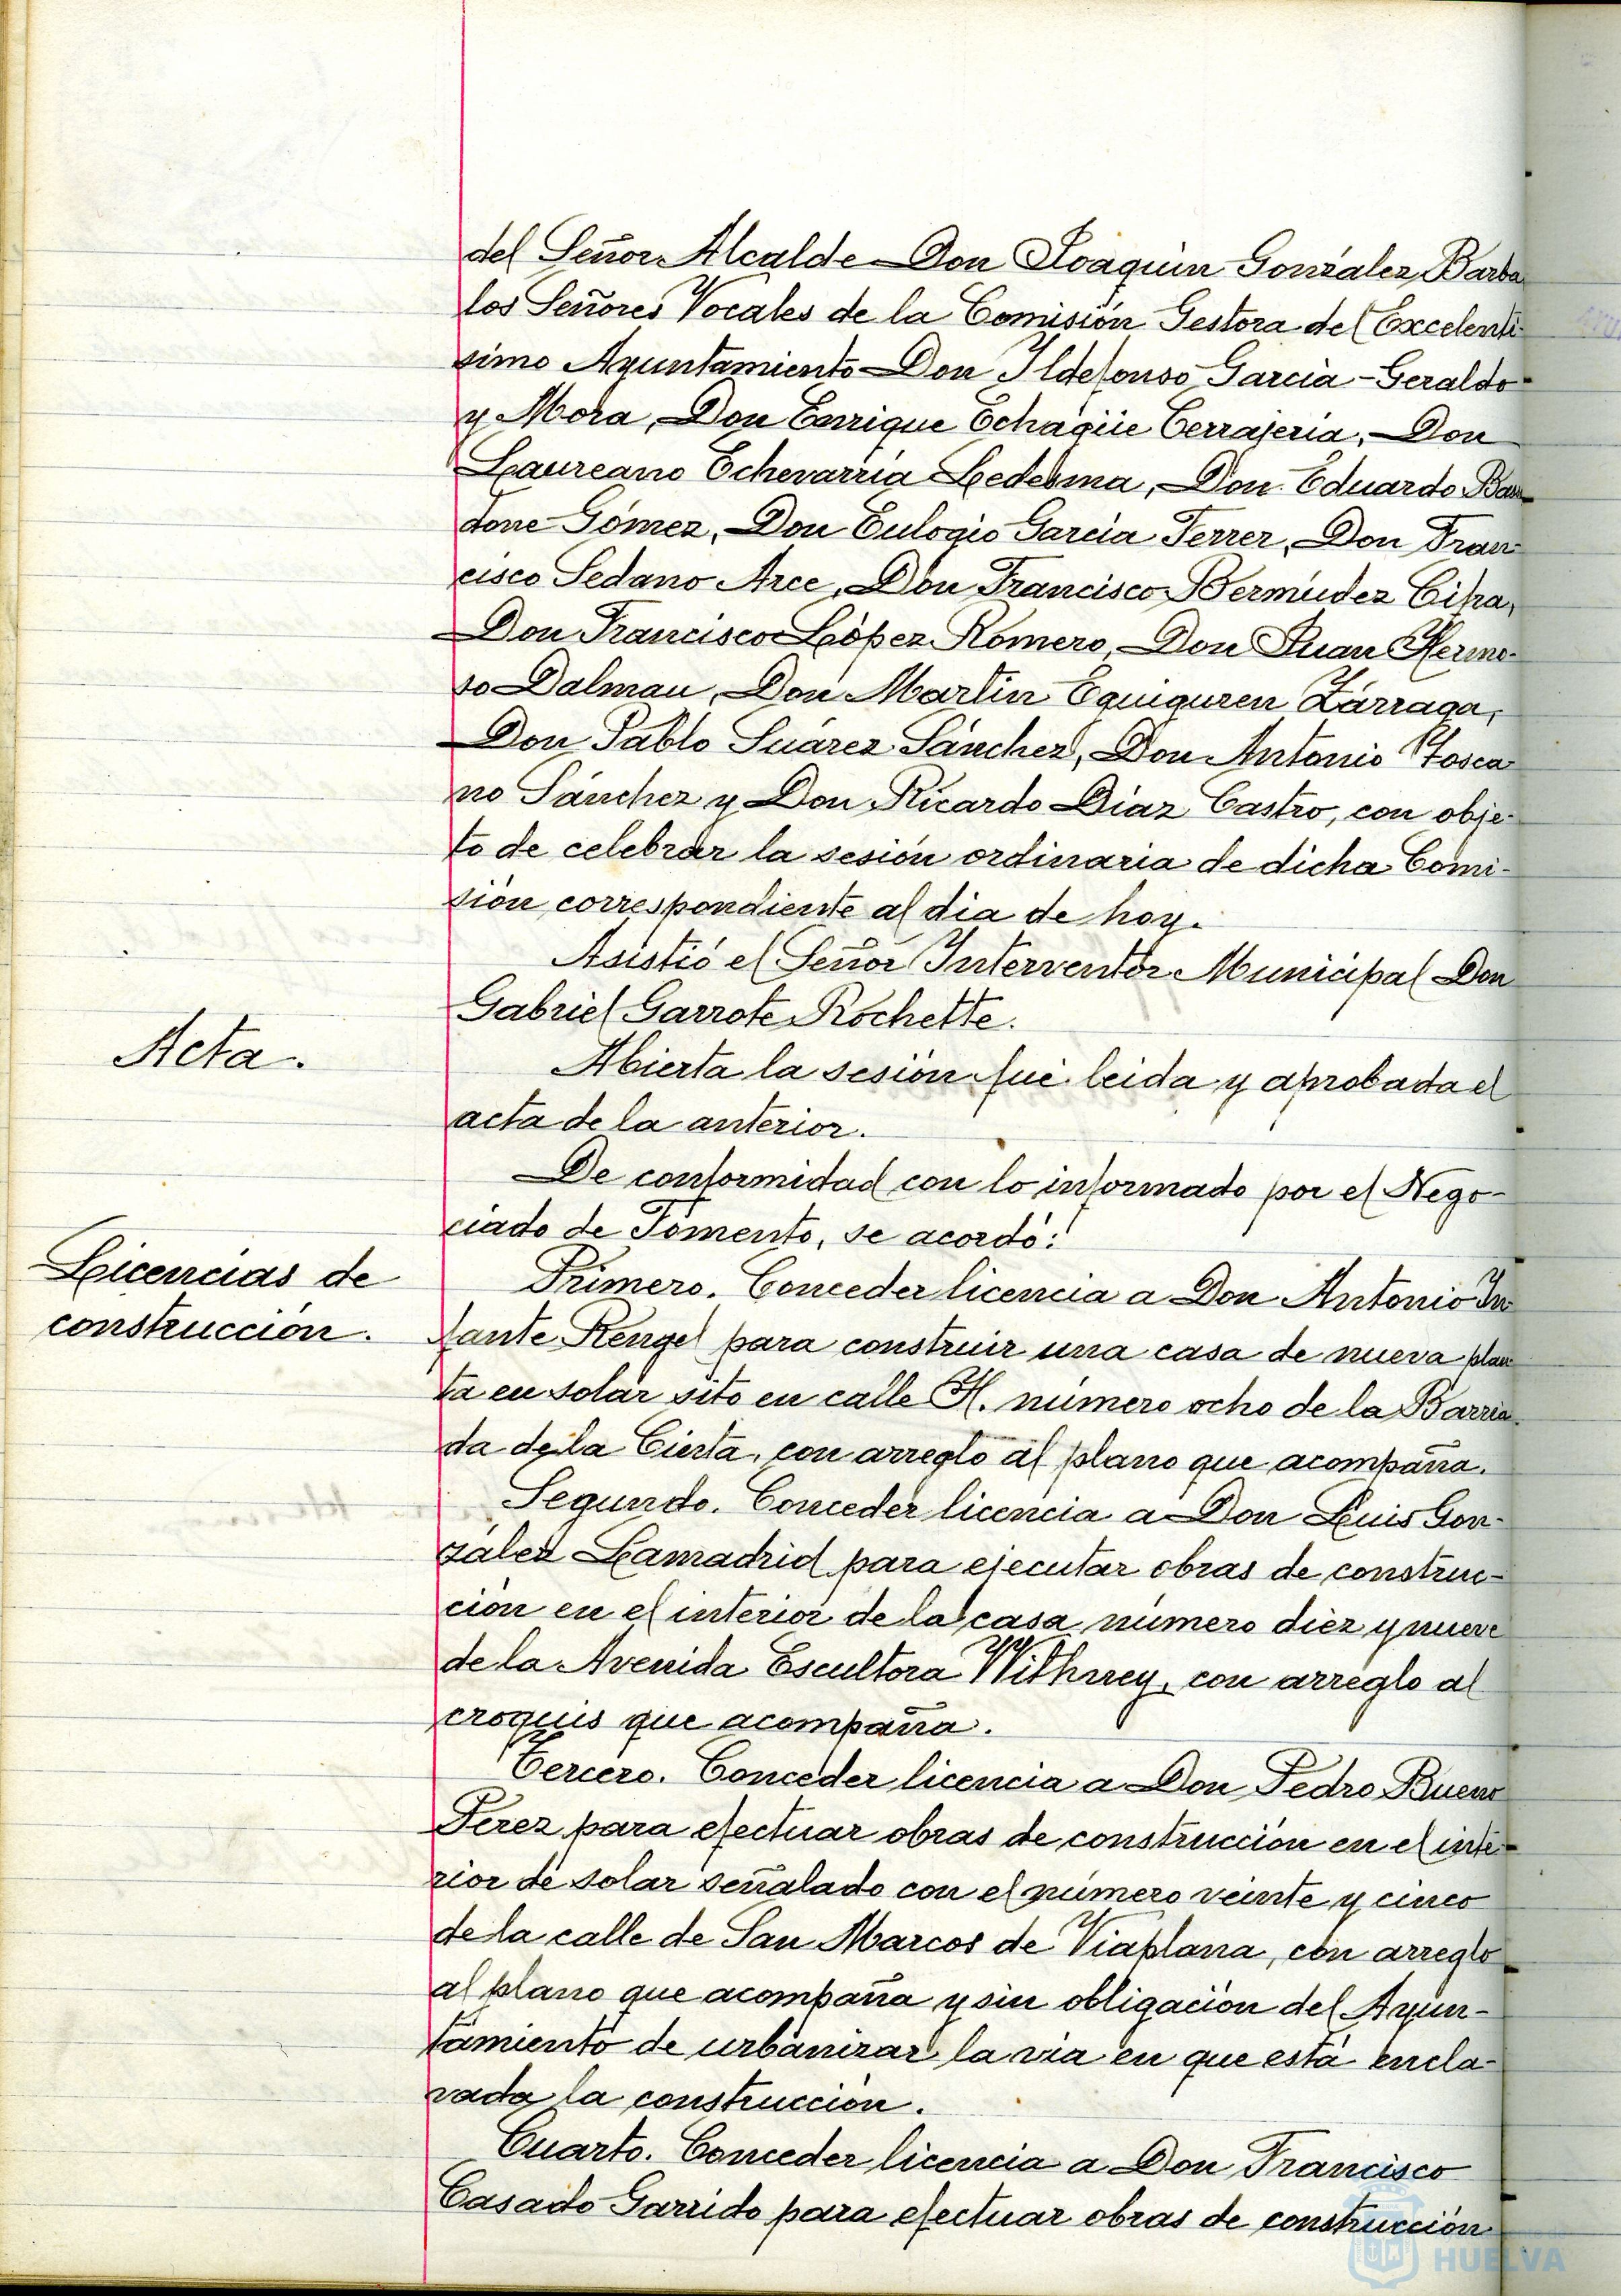 del Señor Alcalde Don Joaquin González Barba
los Señores Vocales de la Comisión Gestora del Excelentí-
simo Ayuntamiento Don Ildefonso García-Geraldo
y Mora, Don Enrique Echagüe Cerrajería, Don
Laureano Echevarría Ledesma, Don Eduardo Bar-
done Gómez, Don Eulogio García Ferrer, Don Fran
cisco Sedano Arce, Don Francisco Bermúdez Cipa,
Don Francisco López Romero, Don Juan Hermo-
so Dalmau, Don Martín Eguiguren Zárraga,
Don Pablo Suárez Sánchez, Don Antonio Tosca
no Sánchez y Don Ricardo Díaz Castro, con obje-
to de celebrar la sesión ordinaria de dicha Comi-
sión correspondiente al dia de hoy.
Asistió el Señor Interventor Municipal Don
Gabriel Garrote Rochette.
Acta.
Abierta la sesión fué leida y aprobada el
acta de la anterior.
De conformidad con lo informado por el Nego-
ciado de Fomento, se acordó:
Licencias de
construcción.
Primero. Conceder licencia a Don Antonio In
fante Rengel para construir una casa de nueva plan
ta en solar sito en calle H. número ocho de la Barria-
da de la Cierta, con arreglo al plano que acompaña.
Segundo. Conceder licencia a Don Luis Gon-
zález Lamadrid para ejecutar obras de construc-
ción en el interior de la casa número diez y nueve
de la Avenida Escultora Withney, con arreglo al
croquis que acompaña.
Tercero. Conceder licencia a Don Pedro Bueno
Perez para efectuar obras de construcción en el inte-
rior de solar señalado con el número veinte y cinco
de la calle de San Marcos de Viaplana, con arreglo
al plano que acompaña y sin obligación del Ayun-
tamiento de urbanizar la via en que está encla-
vada la construcción.
Cuarto. Conceder licencia a Don Francisco
Casado Garrido para efectuar obras de construcción
HUELVA